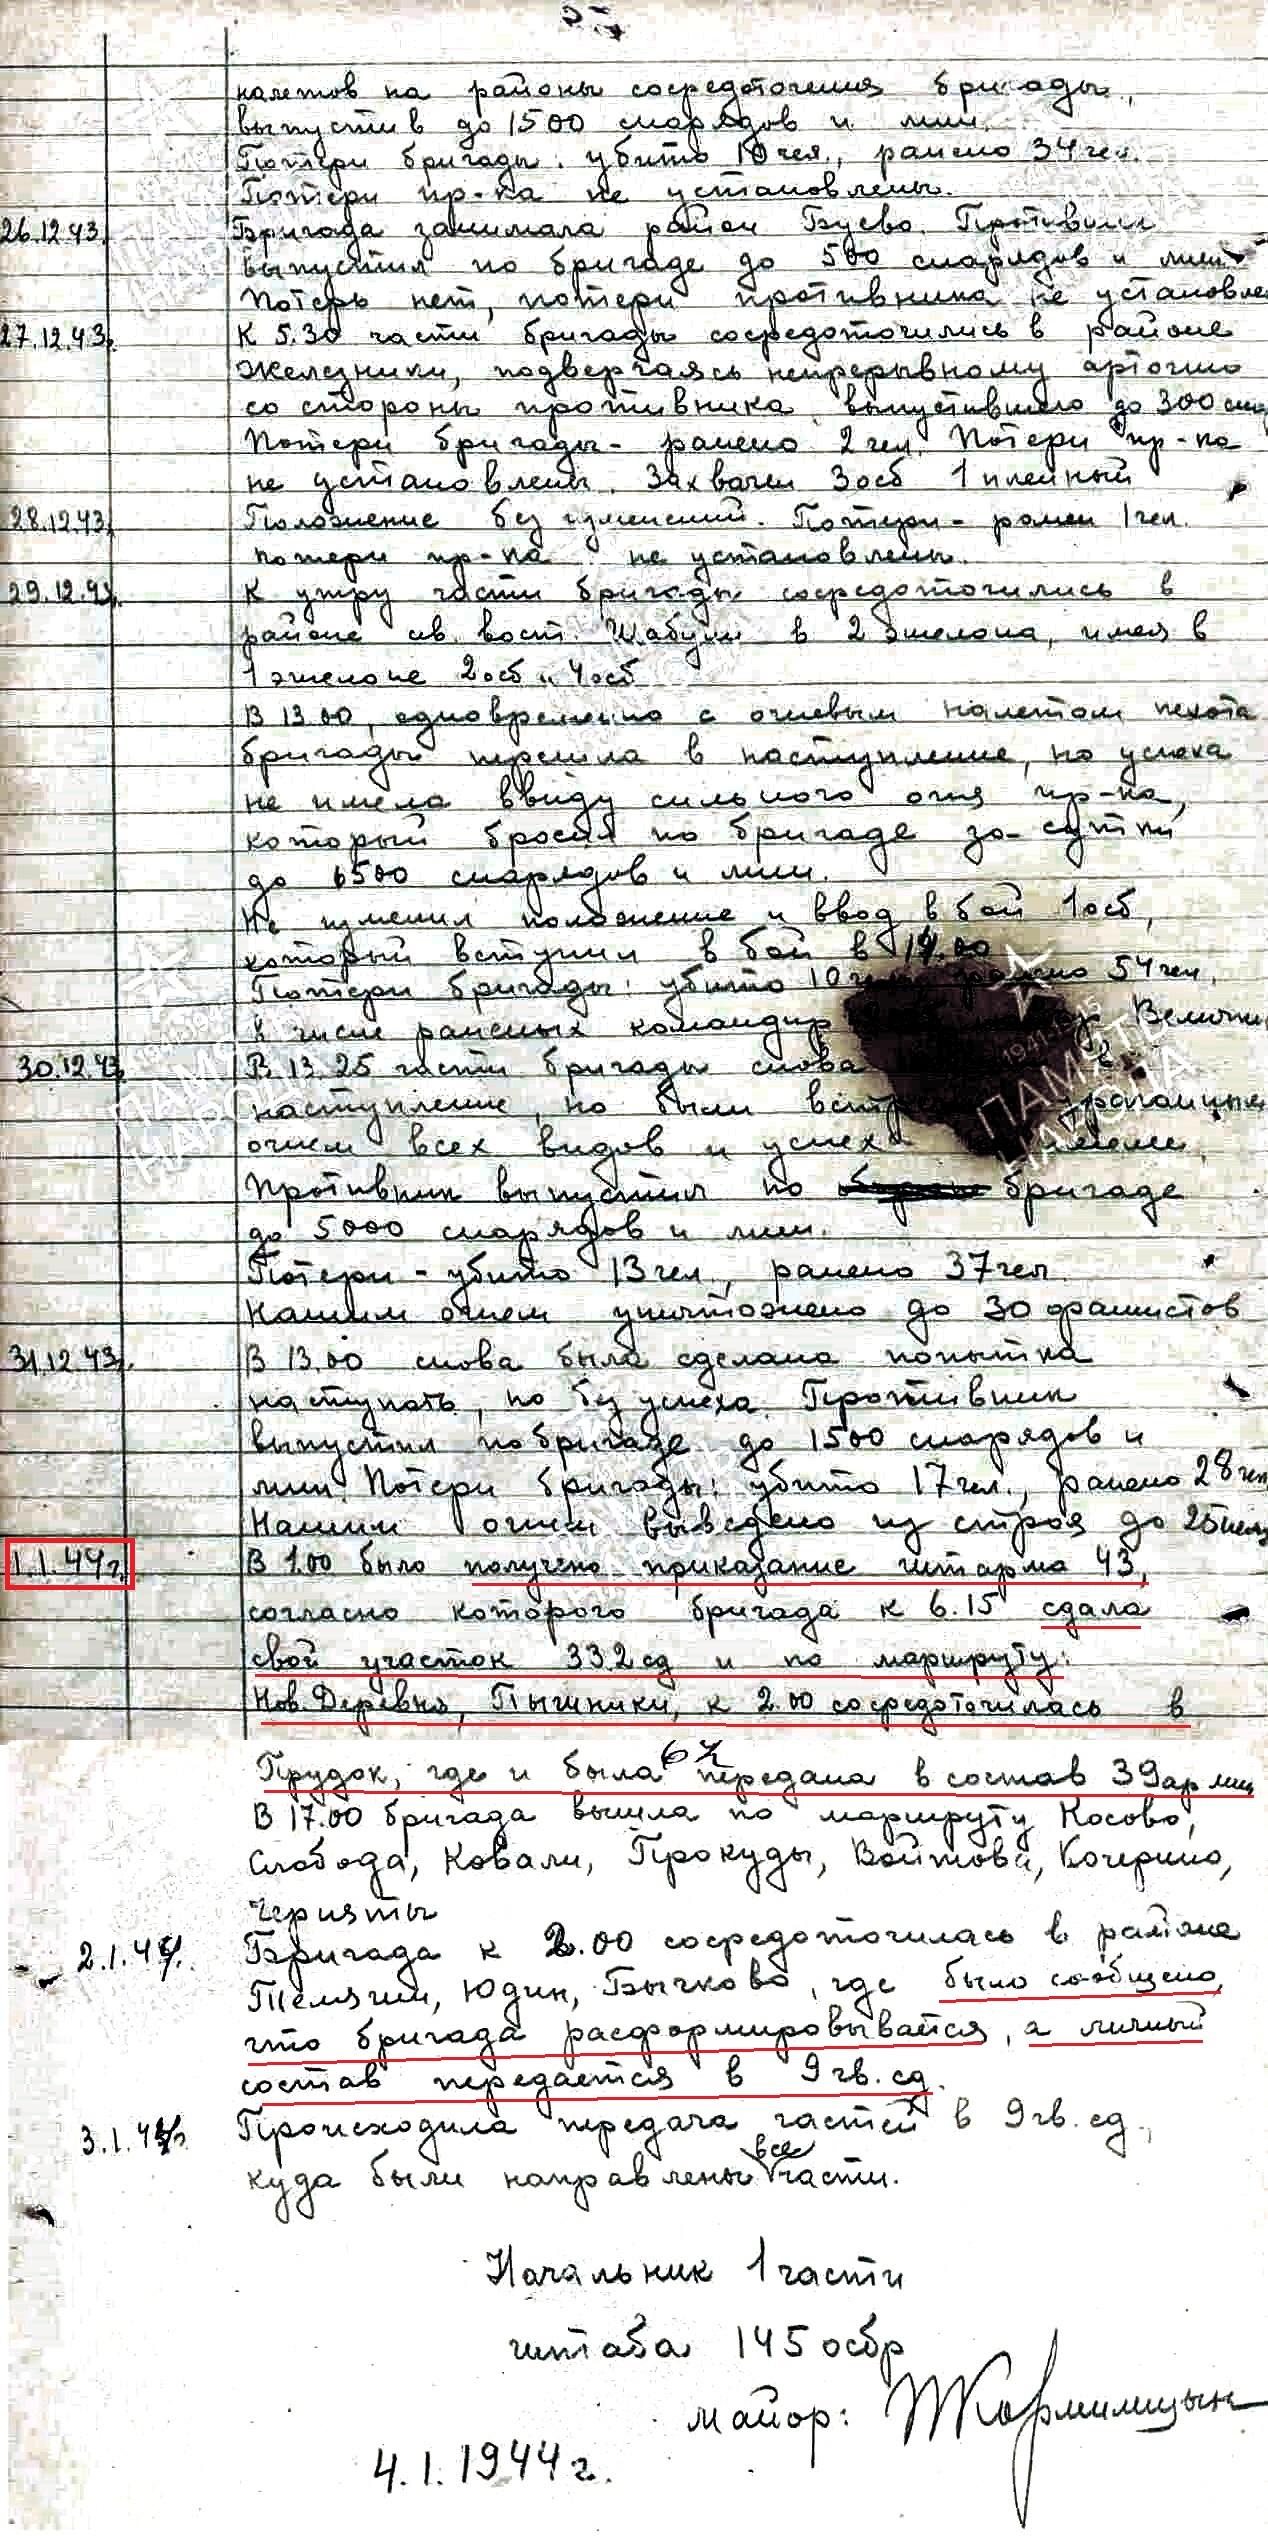 налетов на районы сосредоточения бригады,
выпустив до 1500 снарядов и мин.
Потери бригады: убито 10 чел., ранено 34 чел.
Потери пр-ка не установлены.
26.12.43. Бригада занимала район Буево. Противник
выпустил по бригаде до 500 снарядов и мин
Потерь нет, потери противника не установлен
27.12.43г. К 5.30 части бригады сосредоточились в районе
Железники, подвергаясь непрерывному артогню
со стороны противника, выпустившего до 300 снар
Потери бригады - ранено 2 чел. Потери пр-ка
не установлены. Захвачен 3 осб 1 пленный
28.12.43г. Положение без изменений. Потери - ранен 1 чел.
потери пр-ка не установлены.
29.12.43г. К утру части бригады сосредоточились в
районе сев. вост. Шабуни в 2 эшелона, имея в
1 эшелоне 2 осб и 4 осб
В 13.00, одновременно с огневым налетом пехота
бригады перешла в наступление, но успеха
не имела ввиду сильного огня пр-ка,
который бросил по бригаде за сутки
до 6500 снарядов и мин.
Не изменил положение и ввод в бой 1 осб,
который вступил в бой в 14.00
Потери бригады: убито 10 чел. ранено 54 чел.
В числе раненых командир Величк
30.12.43г. В 13.25 части бригады снова в
наступление, но были встр
огнем всех видов и успех имели.
Противник выпустил по бригаде
до 5000 снарядов и мин.
Потери - убито 13 чел., ранено 37 чел
Нашим огнем уничтожено до 30 фашистов
31.12.43г. В 13.00 снова была сделана попытка
наступать, но без успеха. Противник
выпустил по бригаде до 1500 снарядов и
мин. Потери бригады: убито 17 чел., ранено 28 чел
Нашим огнем выведено из строя до 25 нем
1.1.44г. В 1.00 было получено приказание штарма 43,
согласно которого бригада к 6.15 сдала
свой участок 332 сд и по маршруту:
Нов. Деревня, Пышники, к 2.00 сосредоточилась в
67
Прудок, где и была передана в состав 39 армии
В 17.00 бригада вышла по маршруту Косово,
Слобода, Ковали, Прокуды, Войтова, Кочерино,
Черняты
2.1.44г. Бригада к 2.00 сосредоточилась в районе
Телягин, Юдин, Бычково, где было сообщено,
что бригада расформировывается, а личный
состав передается в 9 гв. сд.
3.1.44г. Происходила передача частей в 9 гв. сд.,
куда были направлены все части.
Начальник 1 части
штаба 145 осбр
майор: Кормилицын
4.1.1944 г.
ПАМЯТЬ
НАРОДА
1941-1945